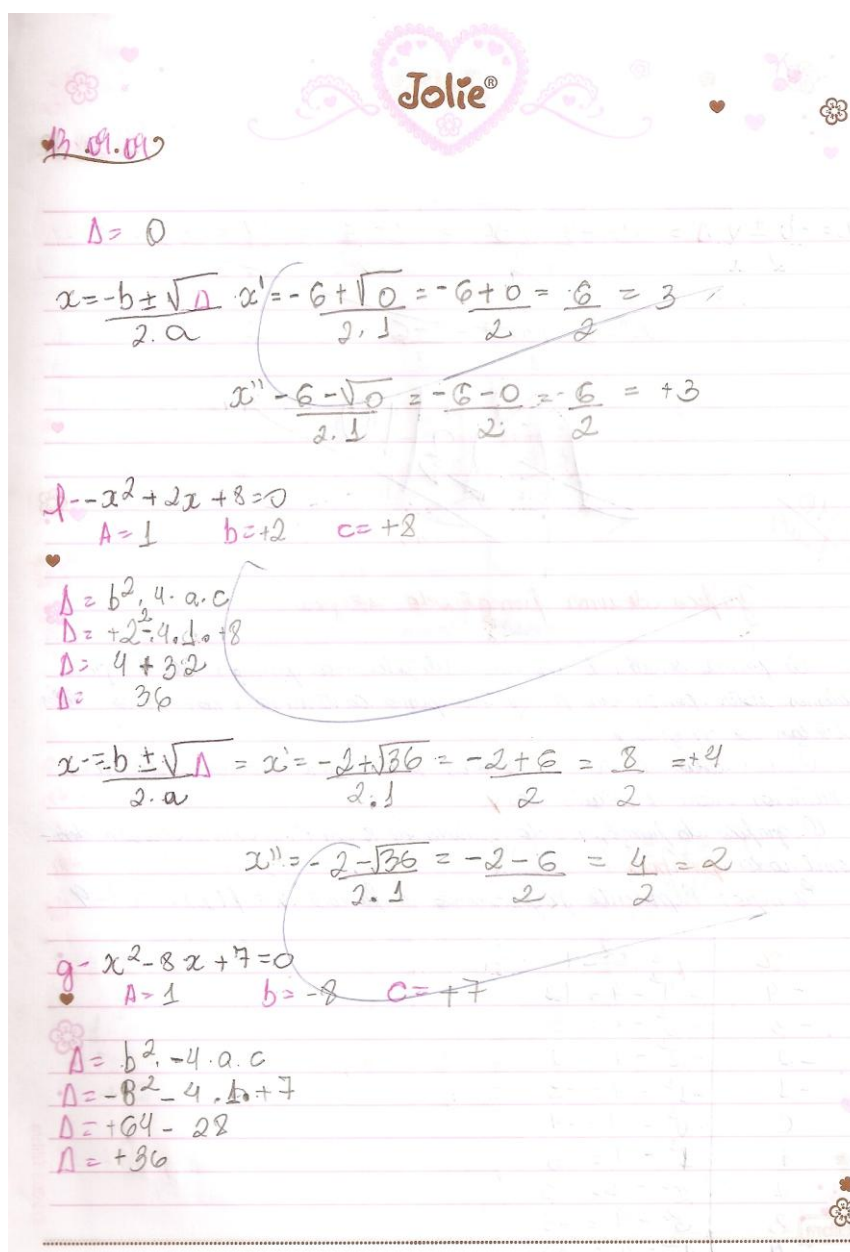 Jolie®
13.09.09
Δ = 0
x = -b ± √Δ / 2.a x' = -6 + √0 / 2.1 = -6 + 0 / 2 = 6 / 2 = 3
x'' - 6 - √0 / 2.1 = -6 - 0 / 2 = -6 / 2 = +3
f - -x² + 2x + 8 = 0
A = 1 b = +2 c = +8
Δ = b², 4. a. c
Δ = +2² - 4.1. +8
Δ = 4 + 32
Δ = 36
x = -b ± √Δ / 2.a = x' = -2 + √36 / 2.1 = -2 + 6 / 2 = 8 / 2 = +4
x'' = -2 - √36 / 2.1 = -2 - 6 / 2 = 4 / 2 = 2
g - x² - 8x + 7 = 0
A = 1 b = -8 C = +7
Δ = b². -4. a. c
Δ = -8² - 4.1. +7
Δ = +64 - 28
Δ = +36